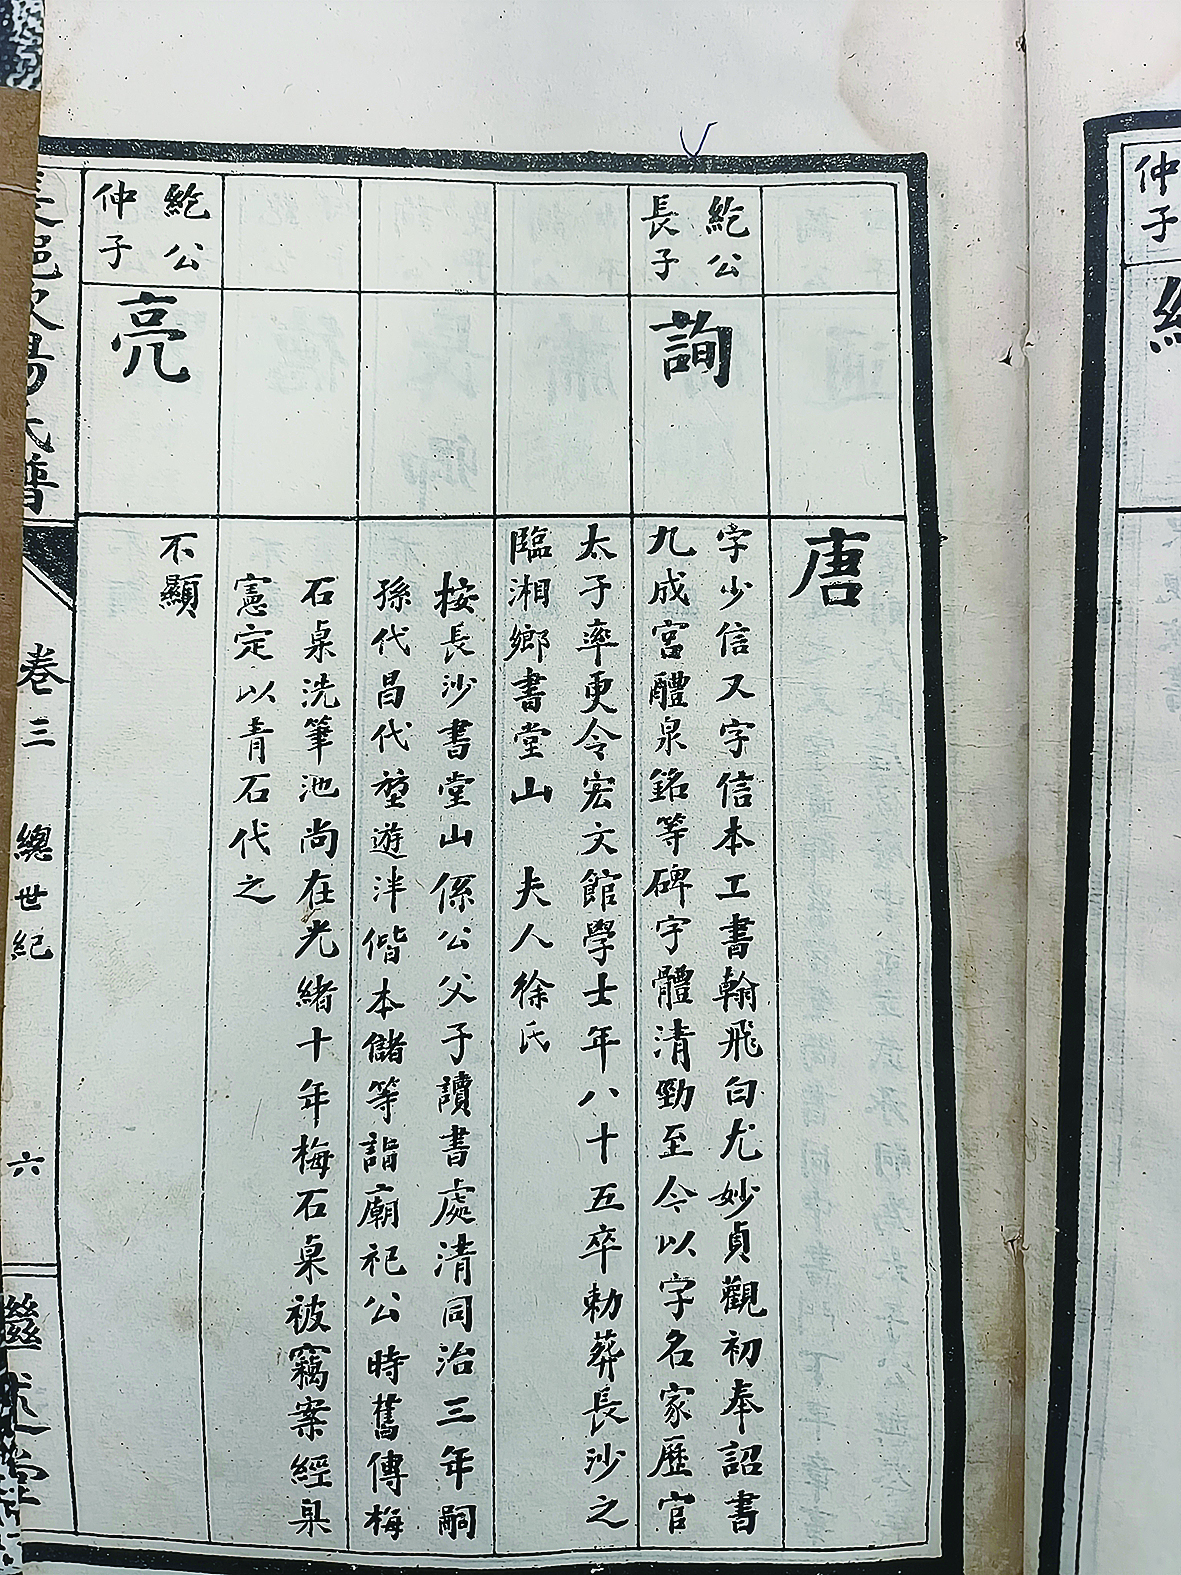 唐
紇公
長子
詢
字少信又字信本工書翰飛白尤妙貞觀初奉詔書
九成宮醴泉銘等碑字體清勁至今以字名家歷官
太子率更令宏文館學士年八十五卒勅葬長沙之
臨湘鄉書堂山 夫人徐氏
按長沙書堂山係公父子讀書處清同治三年嗣
孫代昌代堃遊泮偕本儲等詣廟祀公時舊傳梅
石桌洗筆池尚在光緒十年梅石桌被竊案經臬
憲定以青石代之
紇公
仲子
亮
不顯
卷三 總世紀 六
仲子